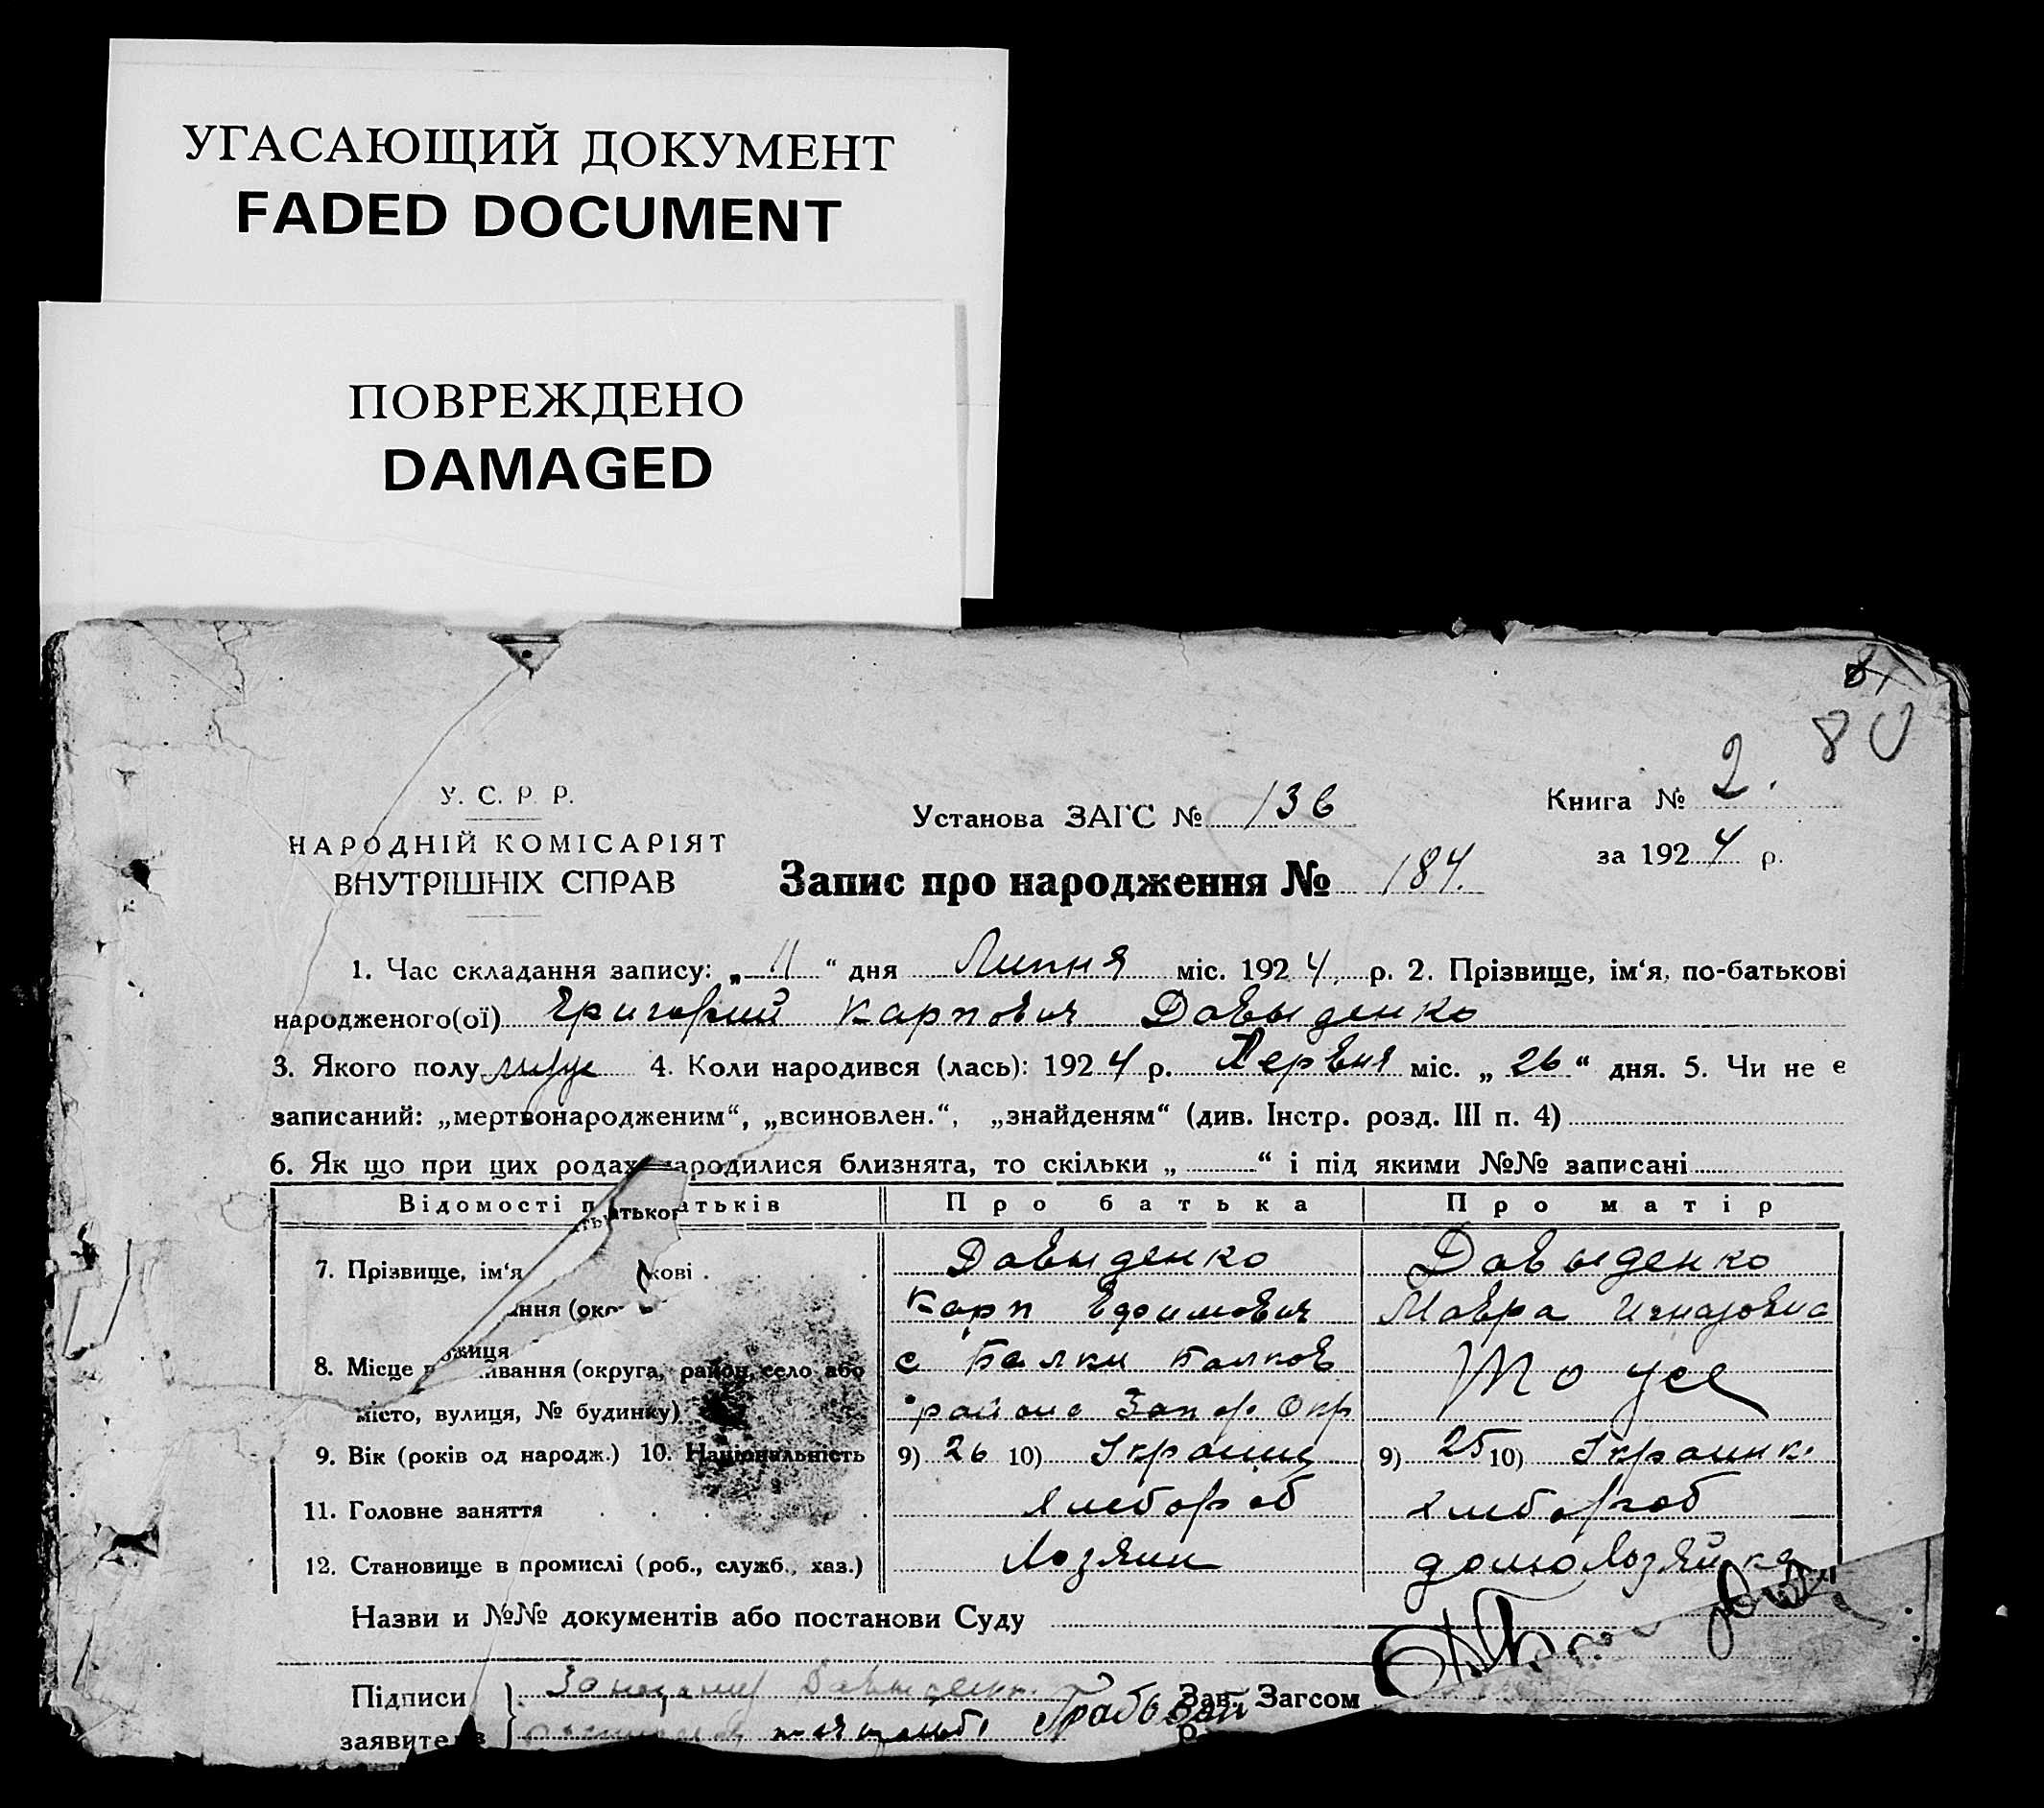 УГАСАЮЩИЙ ДОКУМЕНТ
FADED DOCUMENT
ПОВРЕЖДЕНО
DAMAGED
80
У. С. Р. Р.
НАРОДНІЙ КОМІСАРІЯТ
ВНУТРІШНІХ СПРАВ
Установа ЗАГС № 136
Книга № 2.
за 1924 р.
Запис про народження № 184.
1. Час складання запису: „11“ дня Липня міс. 1924 р. 2. Прізвище, ім‘я, по-батькові
народженого(ої) Григорий Карпович Давыденко
3. Якого полу муж 4. Коли народився (лась): 1924 р. Червня міс. „26“ дня. 5. Чи не є
записаний: „мертвонародженим“, „всиновлен.“, „знайденям“ (див. Інстр. розд. III п. 4)
6. Як що при цих родах народилися близнята, то скільки „ “ і під якими №№ записані
Відомості п атьків Про батька Про матір
7. Прізвище, ім‘я кові Давыденко Давыденко
Карп Ефимович Мавра Игнатовна
8. Місце вання (округа, район, село або с Балки Балков Тоже
місто, вулиця, № будинку) района Запор. Окр
9. Вік (років од народж.) 10. Національність 9) 26 10) Украинц 9) 25 10) Украинк
11. Головне заняття хлебороб хлебороб
12. Становище в промислі (роб., служб., хаз.) Хозяин домохозяйка
Назви и №№ документів або постанови Суду
Підписи Давыденко Зав. Загсом
заявите в